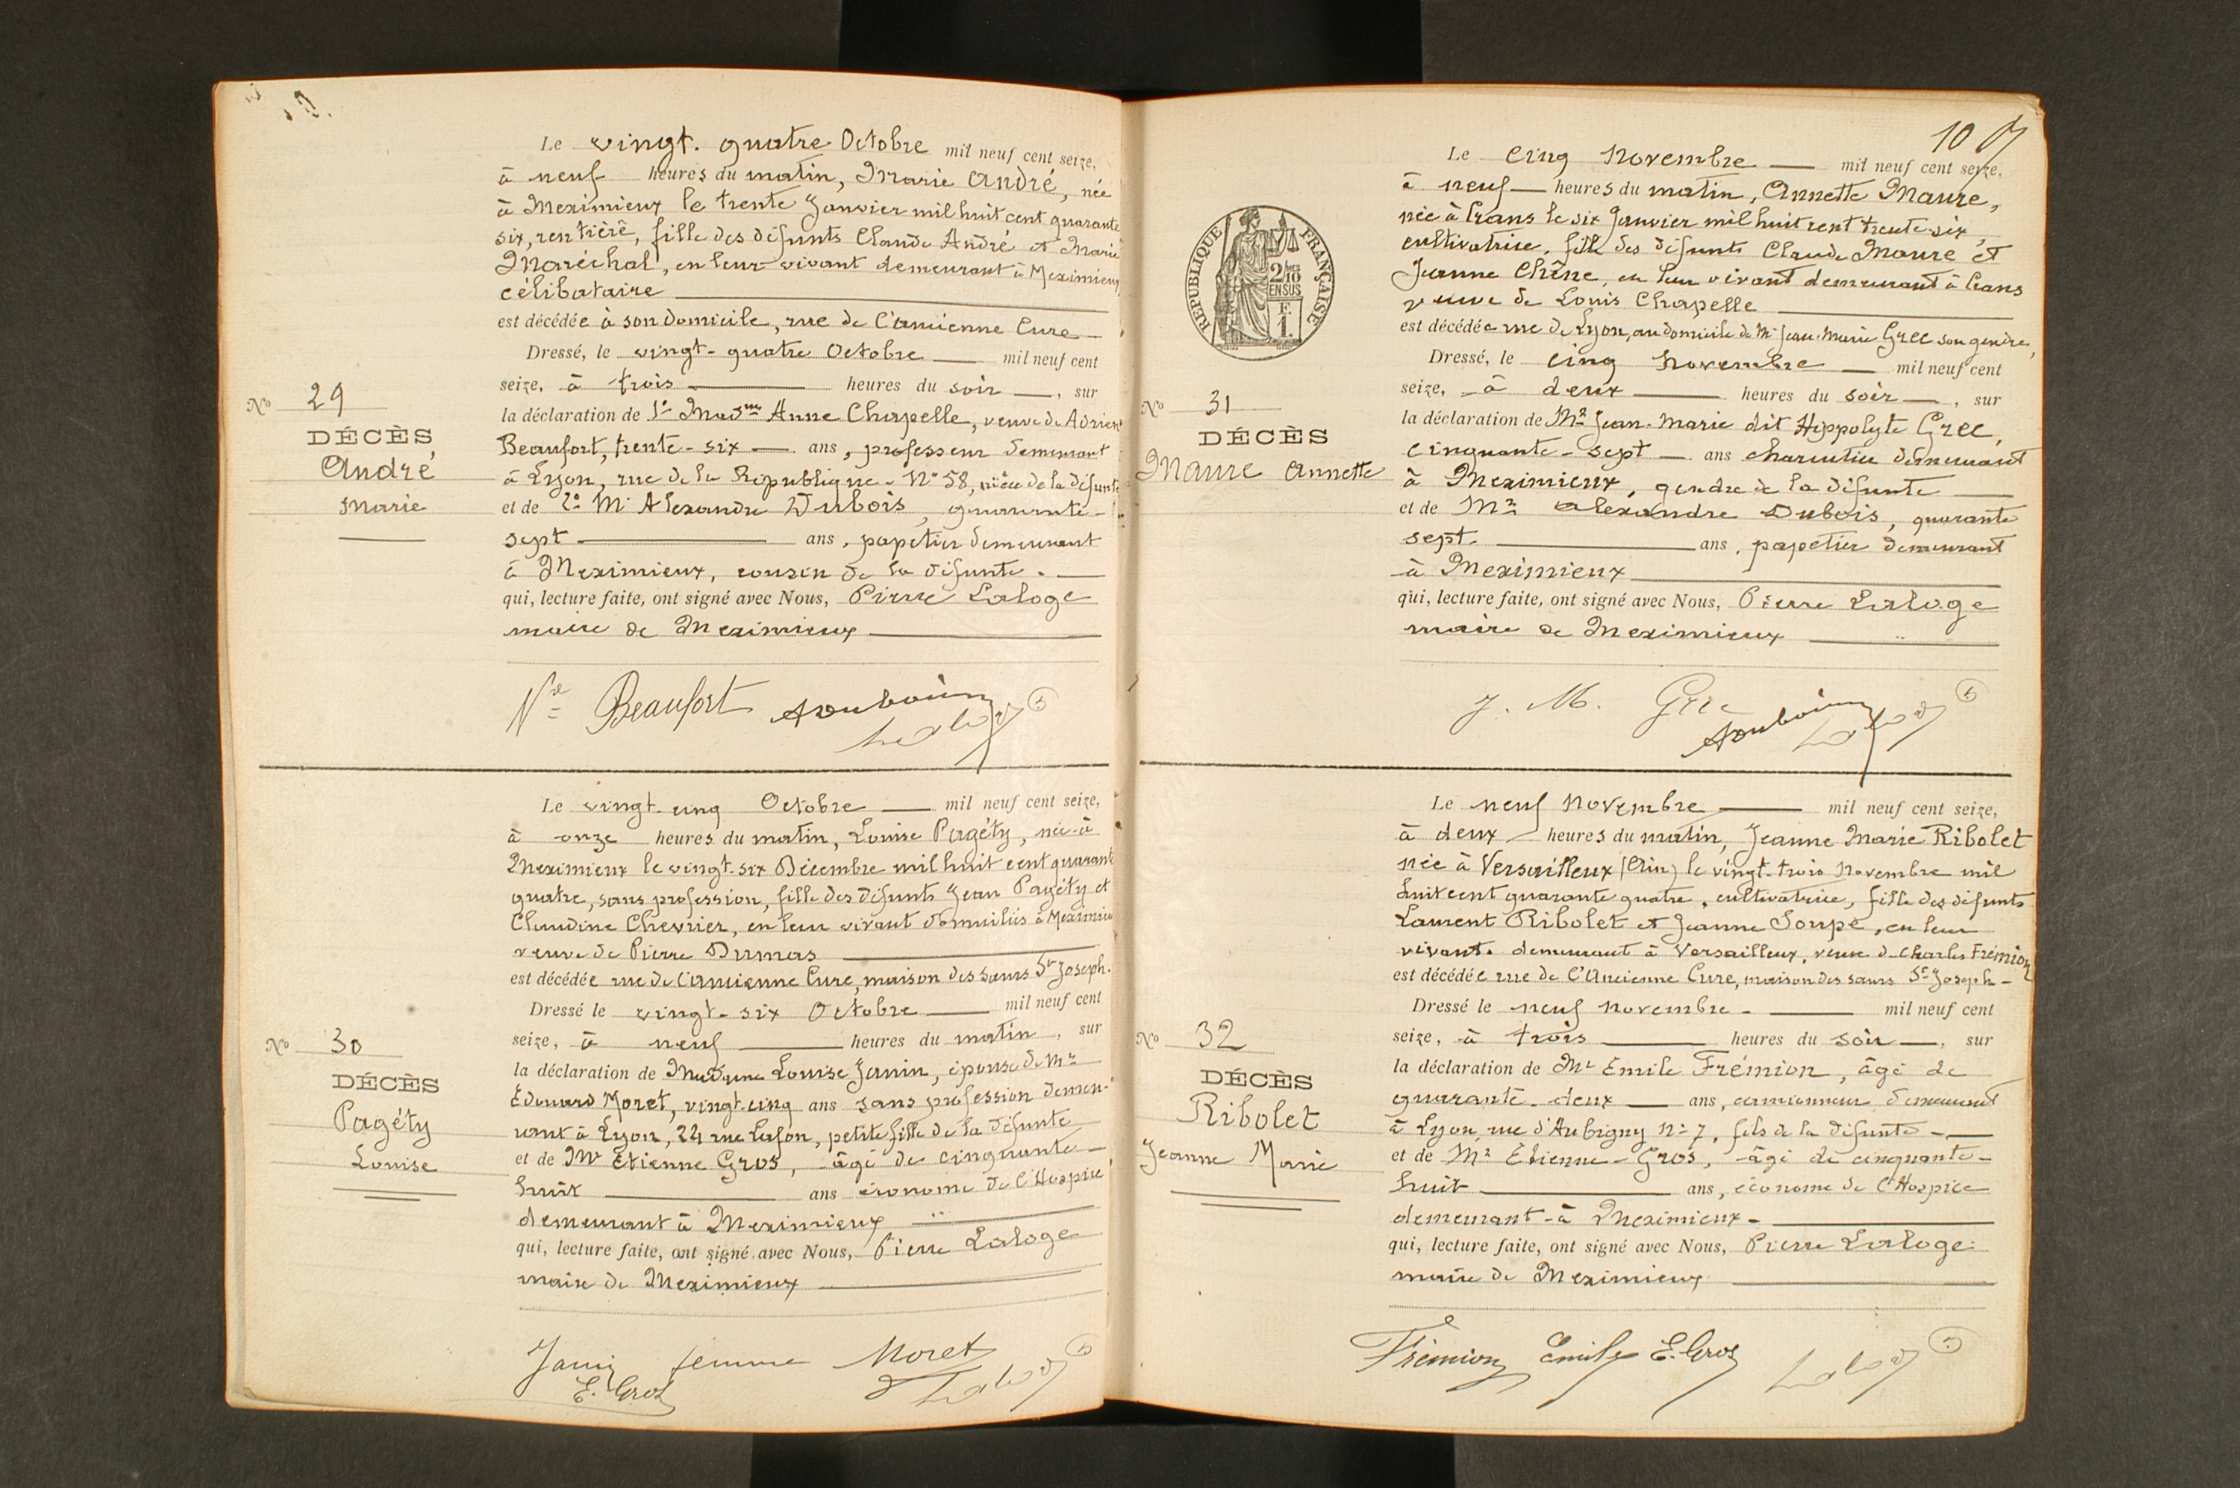 Le vingt-quatre Octobre mil neuf cent seize,
à neuf heures du matin, Marie André, née
à Meximieux le trente Janvier mil huit cent quarante
six, rentière, fille des défunts Claude André et Marie
Maréchal, en leur vivant demeurant à Meximieux
célibataire
est décédée à son domicile, rue de l'ancienne Cure
Dressé, le vingt-quatre Octobre mil neuf cent
seize, à trois heures du soir, sur
la déclaration de 1° Madme Anne Chapelle, veuve de Adrien
Beaufort, trente-six ans, professeur demeurant
à Lyon, rue de la République N° 58, nièce de la défunte
et de 2° Mr Alexandre Dubois, quarante-
sept ans, papetier demeurant
à Meximieux, cousin de la défunte.
qui, lecture faite, ont signé avec Nous, Pierre Laloge
maire de Meximieux
No 29
DÉCÈS
André
Marie
Vve Beaufort
Le vingt-cinq Octobre mil neuf cent seize,
à onze heures du matin, Louise Pagéty, née à
Meximieux le vingt-six Décembre mil huit cent quarante
quatre, sans profession, fille des défunts Jean Pagéty et
Claudine Chevrier, en leur vivant domiciliés à Meximieux
veuve de Pierre Dumas
est décédée rue de l'ancienne Cure, maison des sœurs St Joseph.
Dressé le vingt-six Octobre mil neuf cent
seize, à neuf heures du matin, sur
la déclaration de Madame Louise Janin, épouse de Mr
Edouard Moret, vingt-cinq ans sans profession demeu-
rant à Lyon, 24 rue Lafon, petite fille de la défunte
et de Mr Etienne Gros, âgé de cinquante-
huit ans économe de l'Hospice
demeurant à Meximieux
qui, lecture faite, ont signé avec Nous, Pierre Laloge
maire de Meximieux
No 30
DÉCÈS
Pagéty
Louise
Janin femme Moret
E. Gros
10
Le cinq Novembre mil neuf cent seize,
à neuf heures du matin, Annette Maure,
née à Crans le six Janvier mil huit cent trente-six,
cultivatrice, fille des défunts Claude Maure et
Jeanne Chêne, en leur vivant demeurant à Crans
veuve de Louis Chapelle
est décédée rue de Lyon, au domicile de Mr Jean-Marie Grec son gendre,
Dressé, le cinq Novembre mil neuf cent
seize, à deux heures du soir, sur
la déclaration de Mr Jean-Marie dit Hippolyte Grec,
cinquante-sept ans charcutier demeurant
à Meximieux, gendre de la défunte
et de Mr Alexandre Dubois, quarante
sept ans, papetier demeurant
à Meximieux
qui, lecture faite, ont signé avec Nous, Pierre Laloge
maire de Meximieux
RÉPUBLIQUE FRANÇAISE
2/10 EN SUS
No 31
DÉCÈS
Maure Annette
J. M. Grec
Le neuf Novembre mil neuf cent seize,
à deux heures du matin, Jeanne Marie Ribolet
née à Versailleux (Ain) le vingt-trois Novembre mil
huit cent quarante quatre, cultivatrice, fille des défunts
Laurent Ribolet et Jeanne Soupe, en leur
vivant demeurant à Versailleux, veuve de Charles Frémion
est décédée rue de l'Ancienne Cure, maison des sœurs St Joseph-
Dressé le neuf Novembre mil neuf cent
seize, à trois heures du soir, sur
la déclaration de Mr Emile Frémion, âgé de
quarante-deux ans, camionneur demeurant
à Lyon, rue d'Aubigny N° 7, fils de la défunte
et de Mr Etienne Gros, âgé de cinquante-
huit ans, économe de l'Hospice
demeurant à Meximieux
qui, lecture faite, ont signé avec Nous, Pierre Laloge
maire de Meximieux
No 32
DÉCÈS
Ribolet
Jeanne Marie
Frémion Emile E. Gros